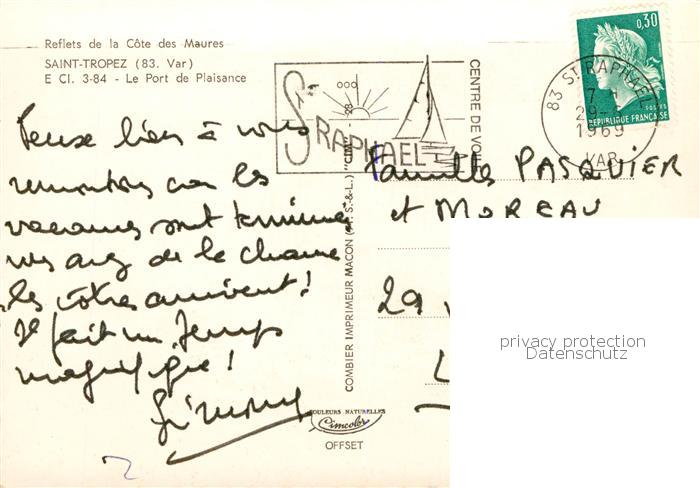 Reflets de la Côte des Maures
SAINT-TROPEZ (83. Var)
E CI. 3-84 - Le Port de Plaisance
Pense bien à vous
remontons car les
vacances sont terminées
vous avez de la chance
les vôtres arrivent!
Il fait un temps
magnifique!
Simone
COMBIER IMPRIMEUR MACON (S.-&-L.) "CIM"
COULEURS NATURELLES
Cimcolor
OFFSET
St RAPHAEL
CENTRE DE
0,30
POSTES
REPUBLIQUE FRANÇAISE
83 St RAPHAEL
29-
1969
VAR
Familles PASQUIER
et MOREAU
29
privacy protection
Datenschutz